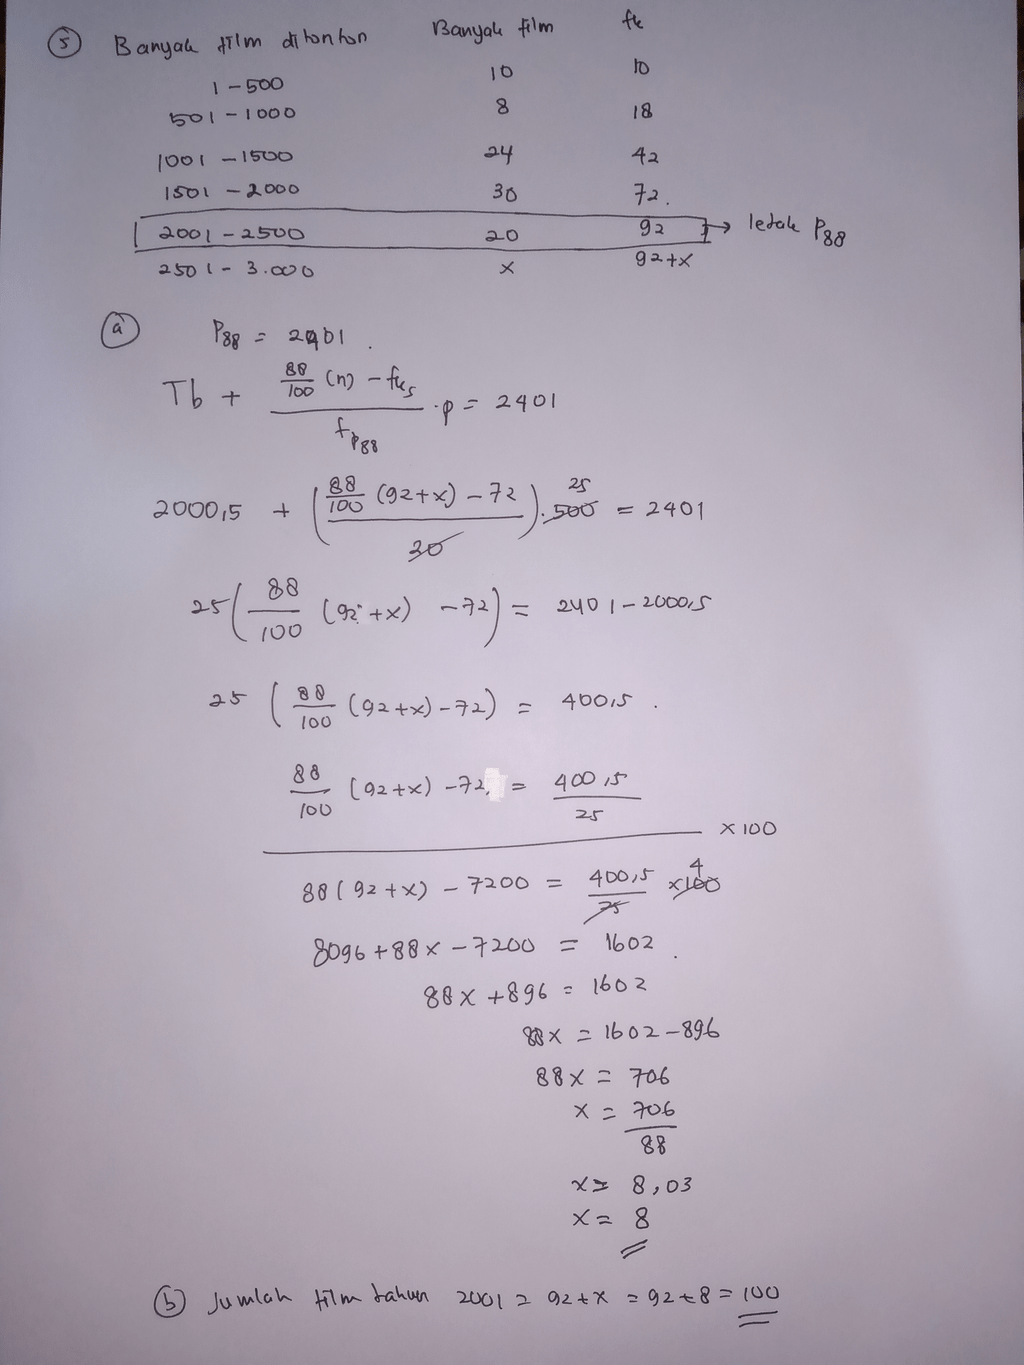 5 Banyak film ditonton Banyak film fk
1 - 500 10 10
501 - 1000 8 18
1001 - 1500 24 42
1501 - 2000 30 72.
2001 - 2500 20 92 → letak P88
2501 - 3.000 x 92+x
a P88 = 2401.
Tb + (88/100 (n) - fks / fP88) . p = 2401
2000,5 + (88/100 (92+x) - 72 / 30) . 500 25 = 2401
25 (88/100 (92+x) - 72) = 2401 - 2000,5
25 (88/100 (92+x) - 72) = 400,5.
88/100 (92+x) - 72 = 400,5/25
x 100
88 (92+x) - 7200 = 400,5/25 x 100 4
8096 + 88x - 7200 = 1602.
88x + 896 = 1602
88x = 1602 - 896
88x = 706
x = 706/88
x = 8,03
x = 8
b Jumlah film tahun 2001 = 92+x = 92+8 = 100